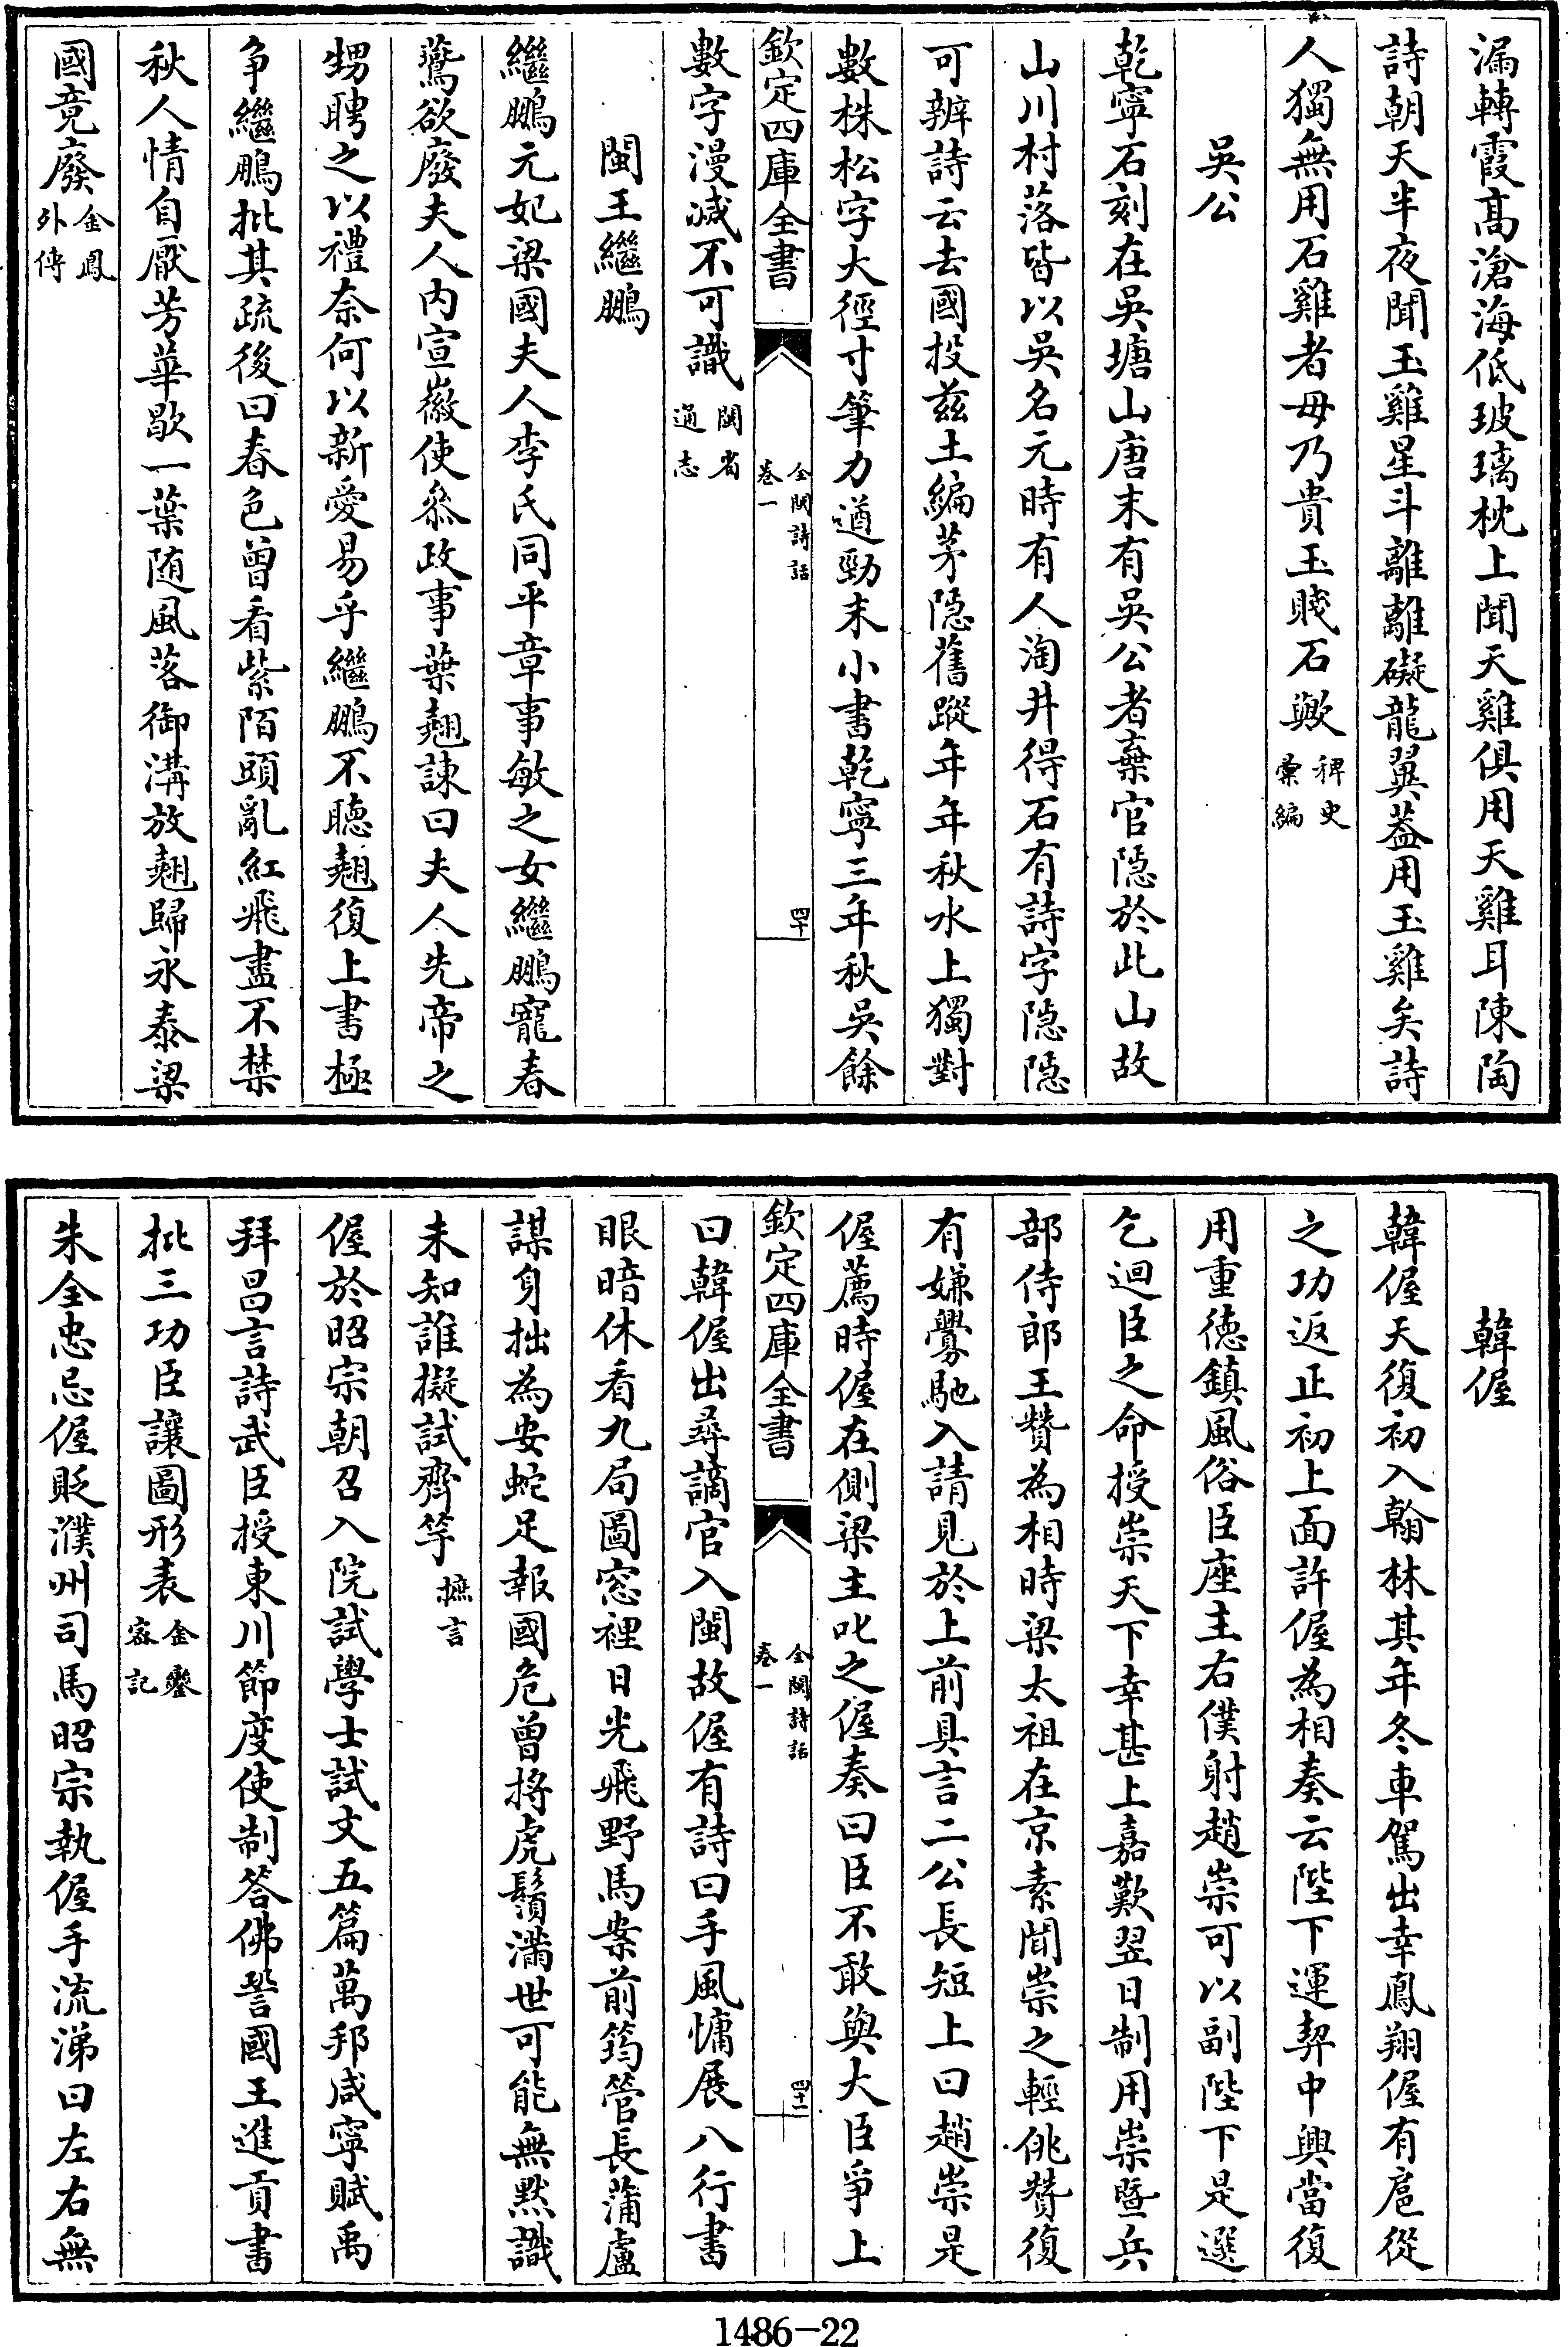 漏轉霞髙滄海低玻璃枕上聞天雞俱用天雞耳陳陶
詩朝天半夜聞玉雞星斗離離礙龍翼葢用玉雞矣詩
人獨無用石雞者毋乃貴玉賤石歟稗史彚編
吳公
乾寧石刻在吳塘山唐末有吳公者棄官隠於此山故
山川村落皆以吳名元時有人淘井得石有詩字隠隠
可辨詩云去國投兹土編茅隠舊蹤年年秋水上獨對
數株松字大徑寸筆力遒勁末小書乾寧三年秋吳餘
欽定四庫全書
全閩詩話
卷一
四十
數字漫滅不可識閩省通志
閩王繼鵬
繼鵬元妃梁國夫人李氏同平章事敏之女繼鵬寵春
鷰欲廢夫人内宣徽使叅政事葉翹諫曰夫人先帝之
甥聘之以禮奈何以新愛易乎繼鵬不聽翹復上書極
争繼鵬批其疏後曰春色曾看紫陌頭亂紅飛盡不禁
秋人情自厭芳華歇一葉随風落御溝放翹歸永泰梁
國竟廢金鳳外傳
韓偓
韓偓天復初入翰林其年冬車駕出幸鳳翔偓有扈從
之功返正初上面許偓為相奏云陛下運契中興當復
用重徳鎮風俗臣座主右僕射趙崇可以副陛下是選
乞迴臣之命授崇天下幸甚上嘉歎翌日制用崇暨兵
部侍郎王贊為相時梁太祖在京素聞崇之輕佻贊復
有嫌釁馳入請見於上前具言二公長短上曰趙崇是
偓薦時偓在側梁主叱之偓奏曰臣不敢與大臣爭上
欽定四庫全書
全閩詩話
卷一
四十一
曰韓偓出尋謫官入閩故偓有詩曰手風慵展八行書
眼暗休看九局圖窓裡日光飛野馬案前筠管長蒲盧
謀身拙為安蛇足報國危曾捋虎鬚滿世可能無黙識
未知誰擬試齊竽摭言
偓於昭宗朝召入院試學士試文五篇萬邦咸寧賦禹
拜昌言詩武臣授東川節度使制答佛詧國王進貢書
批三功臣讓圖形表金鑾宻記
朱全忠忌偓貶濮州司馬昭宗執偓手流涕曰左右無
1486-22